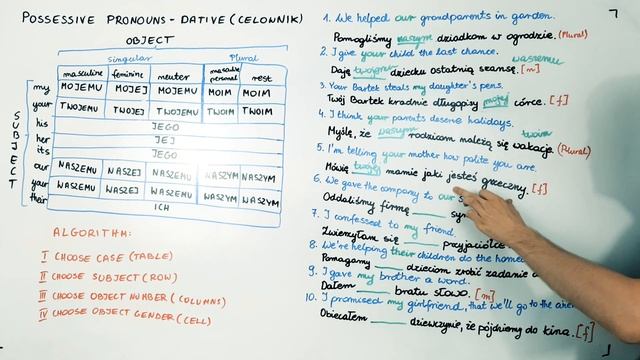 POSSESSIVE PRONOUNS - DATIVE (CELOWNIK)
OBJECT
Singular Plural
masculine feminine neuter masculine personal rest
my MOJEMU MOJEJ MOJEMU MOIM MOIM
your TWOJEMU TWOJEJ TWOJEMU TWOIM TWOIM
his JEGO
her JEJ
its JEGO
our NASZEMU NASZEJ NASZEMU NASZYM NASZYM
your WASZEMU WASZEJ WASZEMU WASZYM WASZYM
their ICH
SUBJECT
ALGORITHM:
I CHOOSE CASE (TABLE)
II CHOOSE SUBJECT (ROW)
III CHOOSE OBJECT NUMBER (COLUMNS)
IV CHOOSE OBJECT GENDER (CELL)
1. We helped our grandparents in garden.
Pomogliśmy naszym dziadkom w ogrodzie. (Plural)
2. I give your child the last chance.
waszemu
Daję twojemu dziecku ostatnią szansę. [n]
3. Your Bartek steals my daughter's pens.
Twój Bartek kradnie długopisy mojej córce. [f]
4. I think your parents deserve holidays.
twoim
Myślę, że waszym rodzicom należą się wakacje. (Plural)
5. I'm telling your mother how polite you are.
Mówię twojej mamie jaki jesteś grzeczny. [f]
6. We gave the company to our
Oddaliśmy firmę ____
7. I confessed to my friend.
Zwierzyłam się ____
8. We're helping their children do the
Pomagamy ____ dzieciom zrobić zadanie
9. I gave my brother a word.
Dałem ____ bratu słowo. [m]
10. I promised my girlfriend, that we'll go to the
Obiecałem ____ dziewczynie, że pójdziemy do kina. [f]